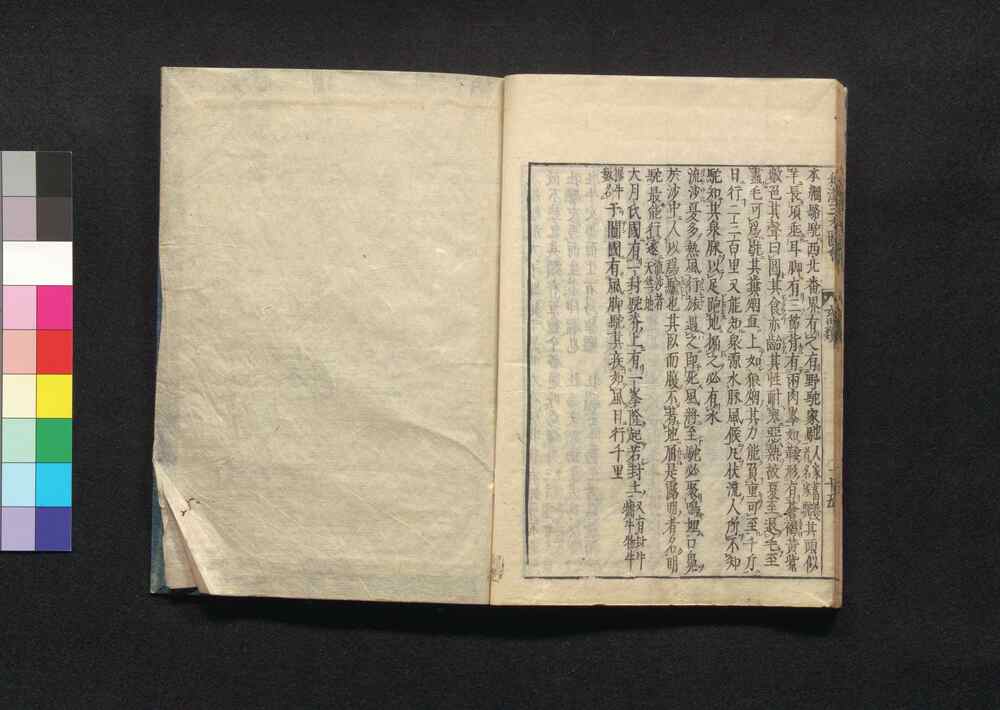 本綱駱駝西北番界有之有野駝家駝人家畜養者名家駝其頭似
羊長項垂耳脚有三節背有兩肉峯如鞍形有蒼褐黃紫
數色其聲曰圓其食亦齝其性耐寒惡熱故夏至退毛至
盡毛可爲毼其糞烟直上如狼烟其力能負重可至千斤
日行二三百里又能知泉源水脉風候凡伏流人所不知
駝知其泉脉以足踏地掘之必有水
流沙夏多熱風行旅遇之即死風將至駝必聚鳴埋口鼻
於沙中人以爲驗也其臥而腹不着地屈足露明者名明
駝最能行遠
大月氏國有一封駝脊上有一峯隆起若封土又有封牛
犎牛 于闐國有風脚駝其疾如風日行千里